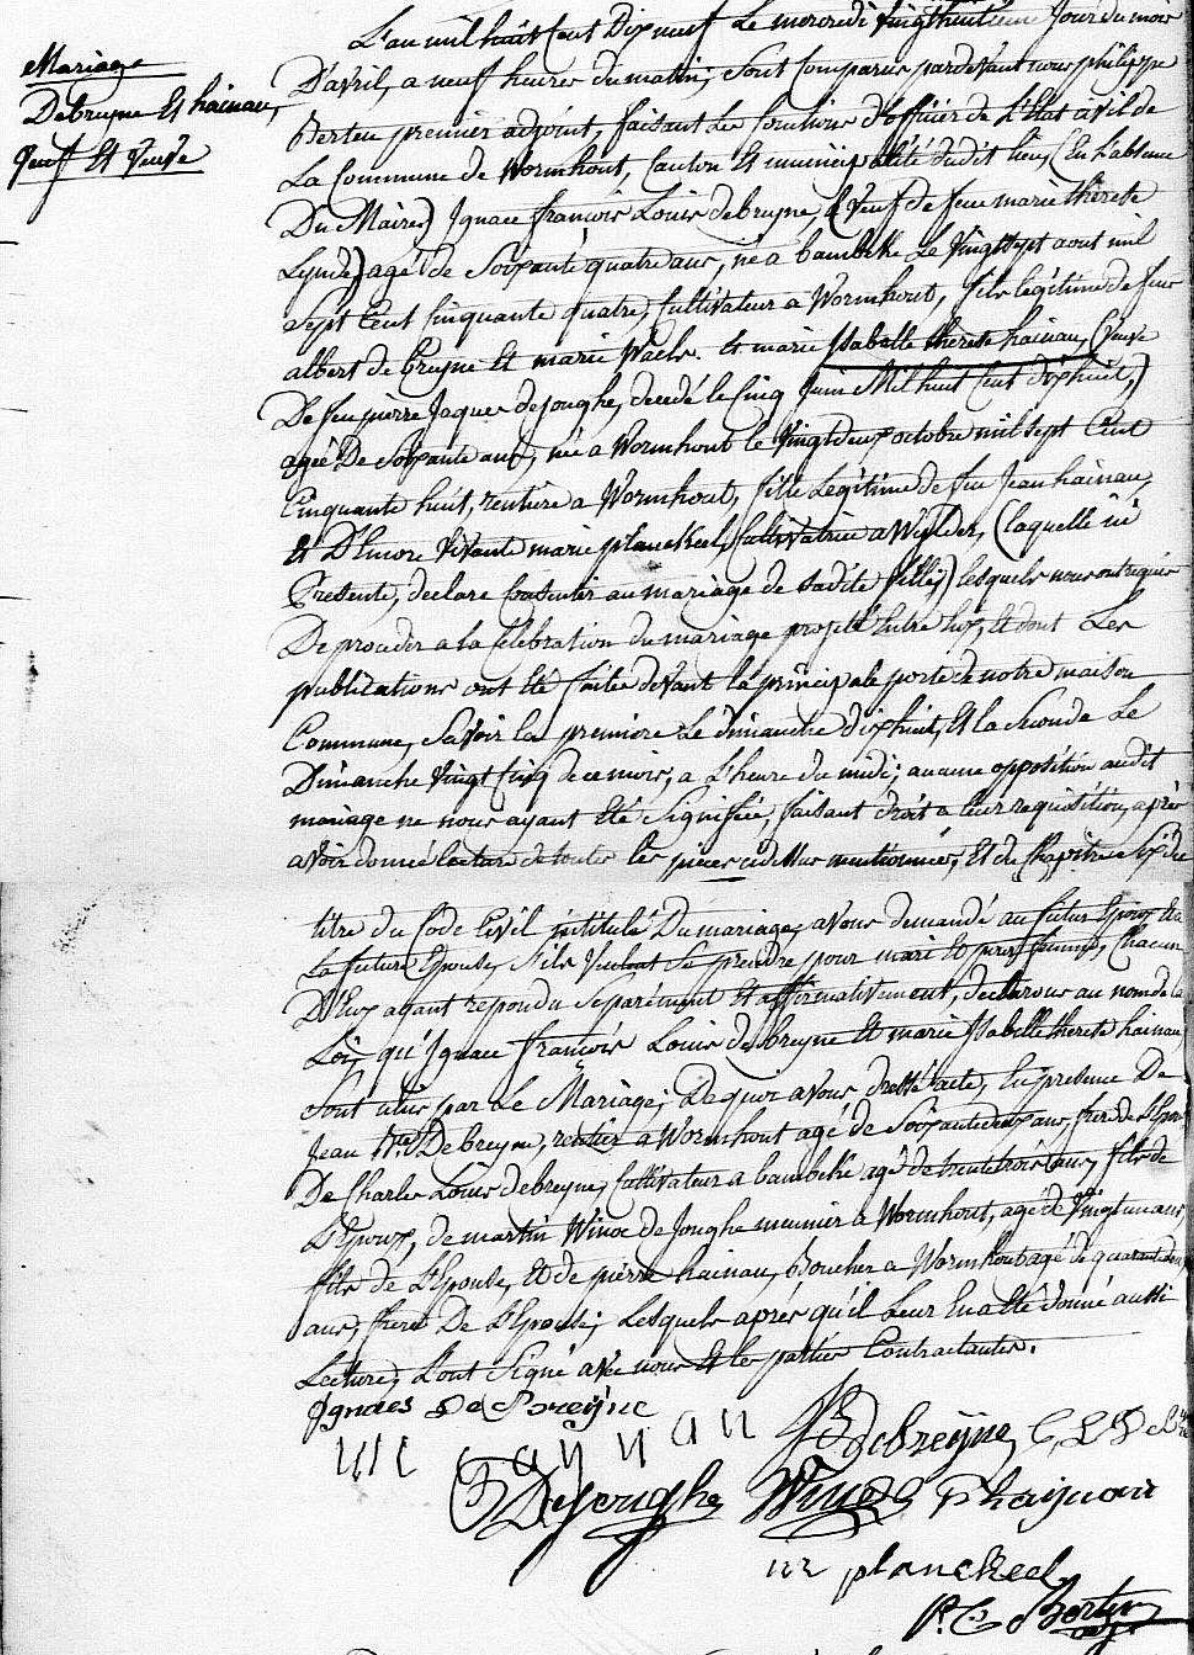 Mariage
Debreyne Et hainau,
Veuf Et Veuve
L'an mil huit Cent Dix neuf Le mercredi vingthuitieme Jour du mois
D'avril, a neuf heures du matin, Sont Comparus pardevant nous philippe
Berten premier adjoint, faisant Les fonctions d'officier de L'Etat civil de
La Commune de Wormhout, Canton Et municipalité dudit lieu, (En L'absence
Du Maire) Ignace françois Louis debreyne, (Veuf de feue marie therese
) agé de Soixante quatre ans, né a bambeke Le Vingtsept aout mil
Sept Cent Cinquante quatre, Cultivateur a Wormhout, fils légitime de feus
albert de breyne Et marie Waels. Et marie Isabelle therese hainau, (Veuve
De feu pierre Jaques dejonghe, decedé le Cinq Juin Mil huit Cent dixhuit,)
agée De Soixante ans, née a Wormhout le Vingtdeux octobre mil sept Cent
Cinquante huit, rentiere a Wormhout, fille Legitime de feu Jean hainau,
Et D'Encore Vivante marie planckeel, Cultivatrice a Wylder, (laquelle ici
Presente, declare Consentir au mariage de sadite fille;) lesquels nous ont requis
De proceder a la Célébration du mariage projetté Entre Eux, Et dont Les
publications ont Eté faites devant la principale porte de notre maison
Commune, Savoir la premiere Le dimanche dixhuit, Et la Seconde Le
Dimanche Vingt Cinq de ce mois, a L'heure du midi; aucune opposition audit
mariage ne nous ayant Eté Signifiée, faisant droit a leur requisition, après
avoir donné lecture de toutes les pieces cidessus mentionnées, Et du Chapitre Six du
titre du Code Civil intitulé Du mariage, avons demandé au futur Epoux Et a
La future Epouse, S'ils Veulent Se prendre pour mari Et pour femme, Chacun
D'Eux ayant repondu Separément Et affirmativement, declarons au nom de la
Loi, qu'Ignace françois Louis debreyne Et marie Isabelle therese hainau
Sont unis par Le Mariage; De quoi avons dressé acte, En presence De
Jean Bte. Debreyne, rentier a Wormhout agé de Soixantedeux ans, frere de L'Epoux
De Charles Louis debreyne, Cultivateur a bambeke agé de trentetrois ans, fils de
L'Epoux, de martin Winoc de Jonghe meunier a Wormhout, agé de Vingt un ans,
fils de L'Epouse, Et de pierre hainau, Boucher a Wormhout agé de quarantedeux
ans, frere De L'Epouse; Lesquels après qu'il Leur En a Eté donné aussi
Lecture, L'ont Signé avec nous Et les parties Contractantes.
Ignaes De Breÿne
JBDebreÿne C L D
DeJonghe Winoc P haijnau
planckeel
P. C. Berten